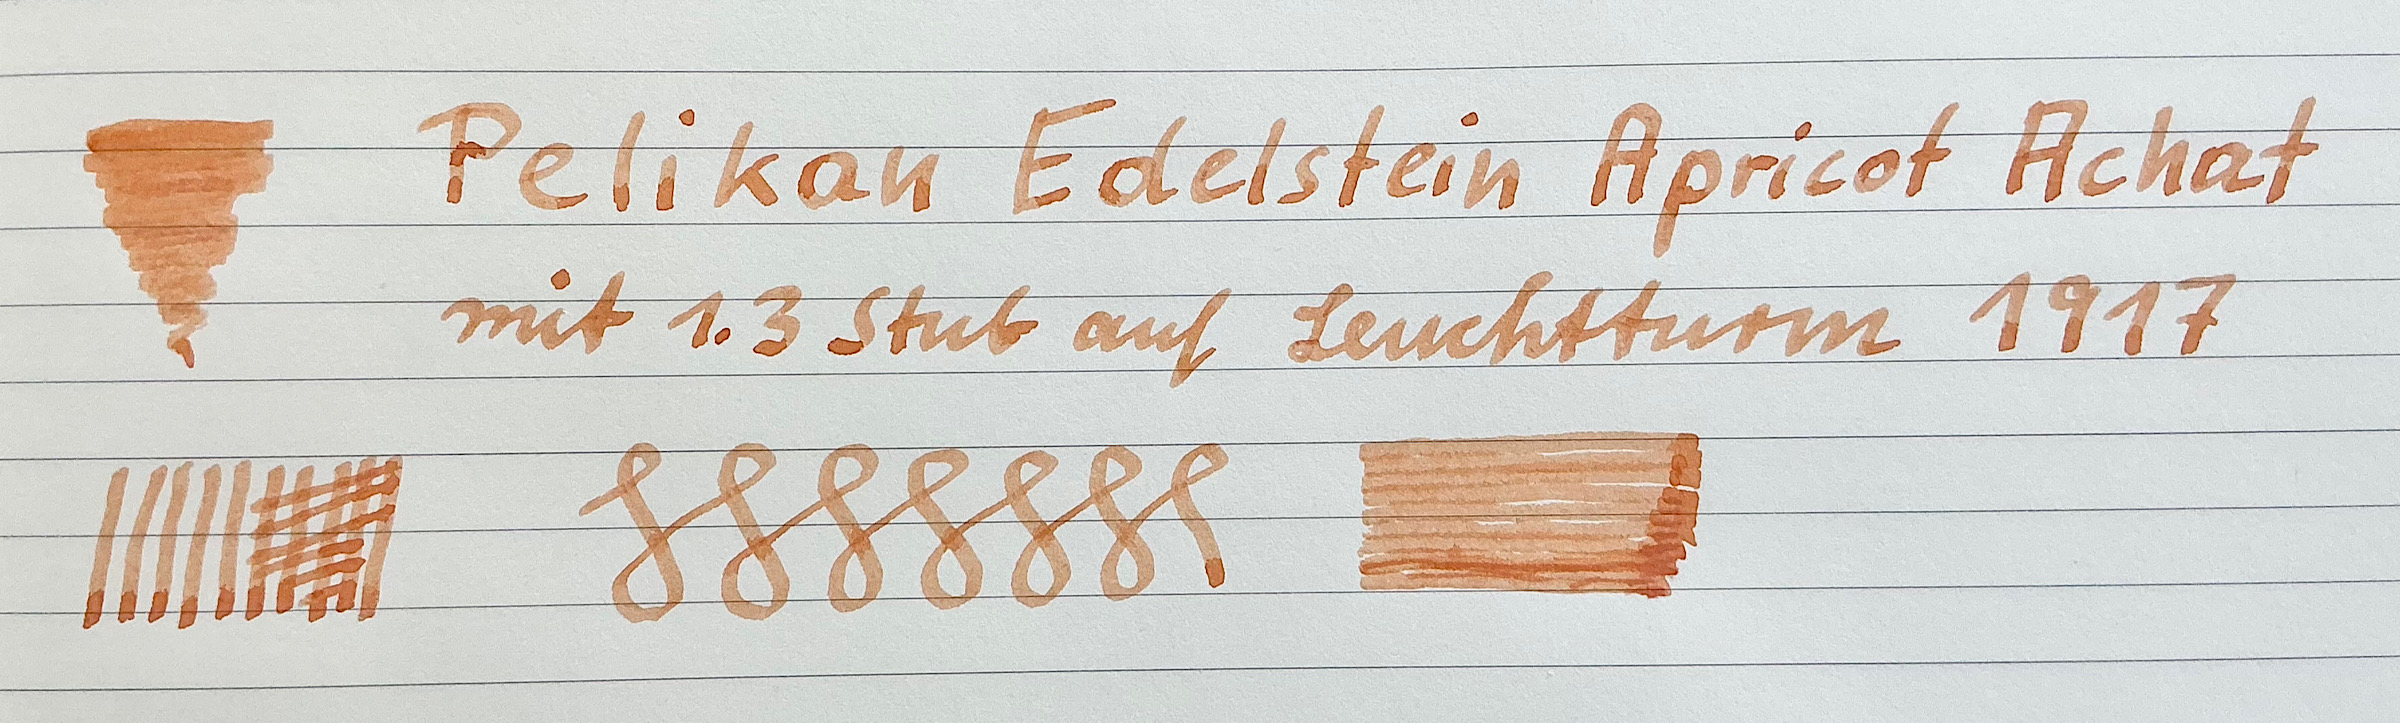 Pelikan Edelstein Apricot Achat
mit 1.3 Stub auf Leuchtturm 1917